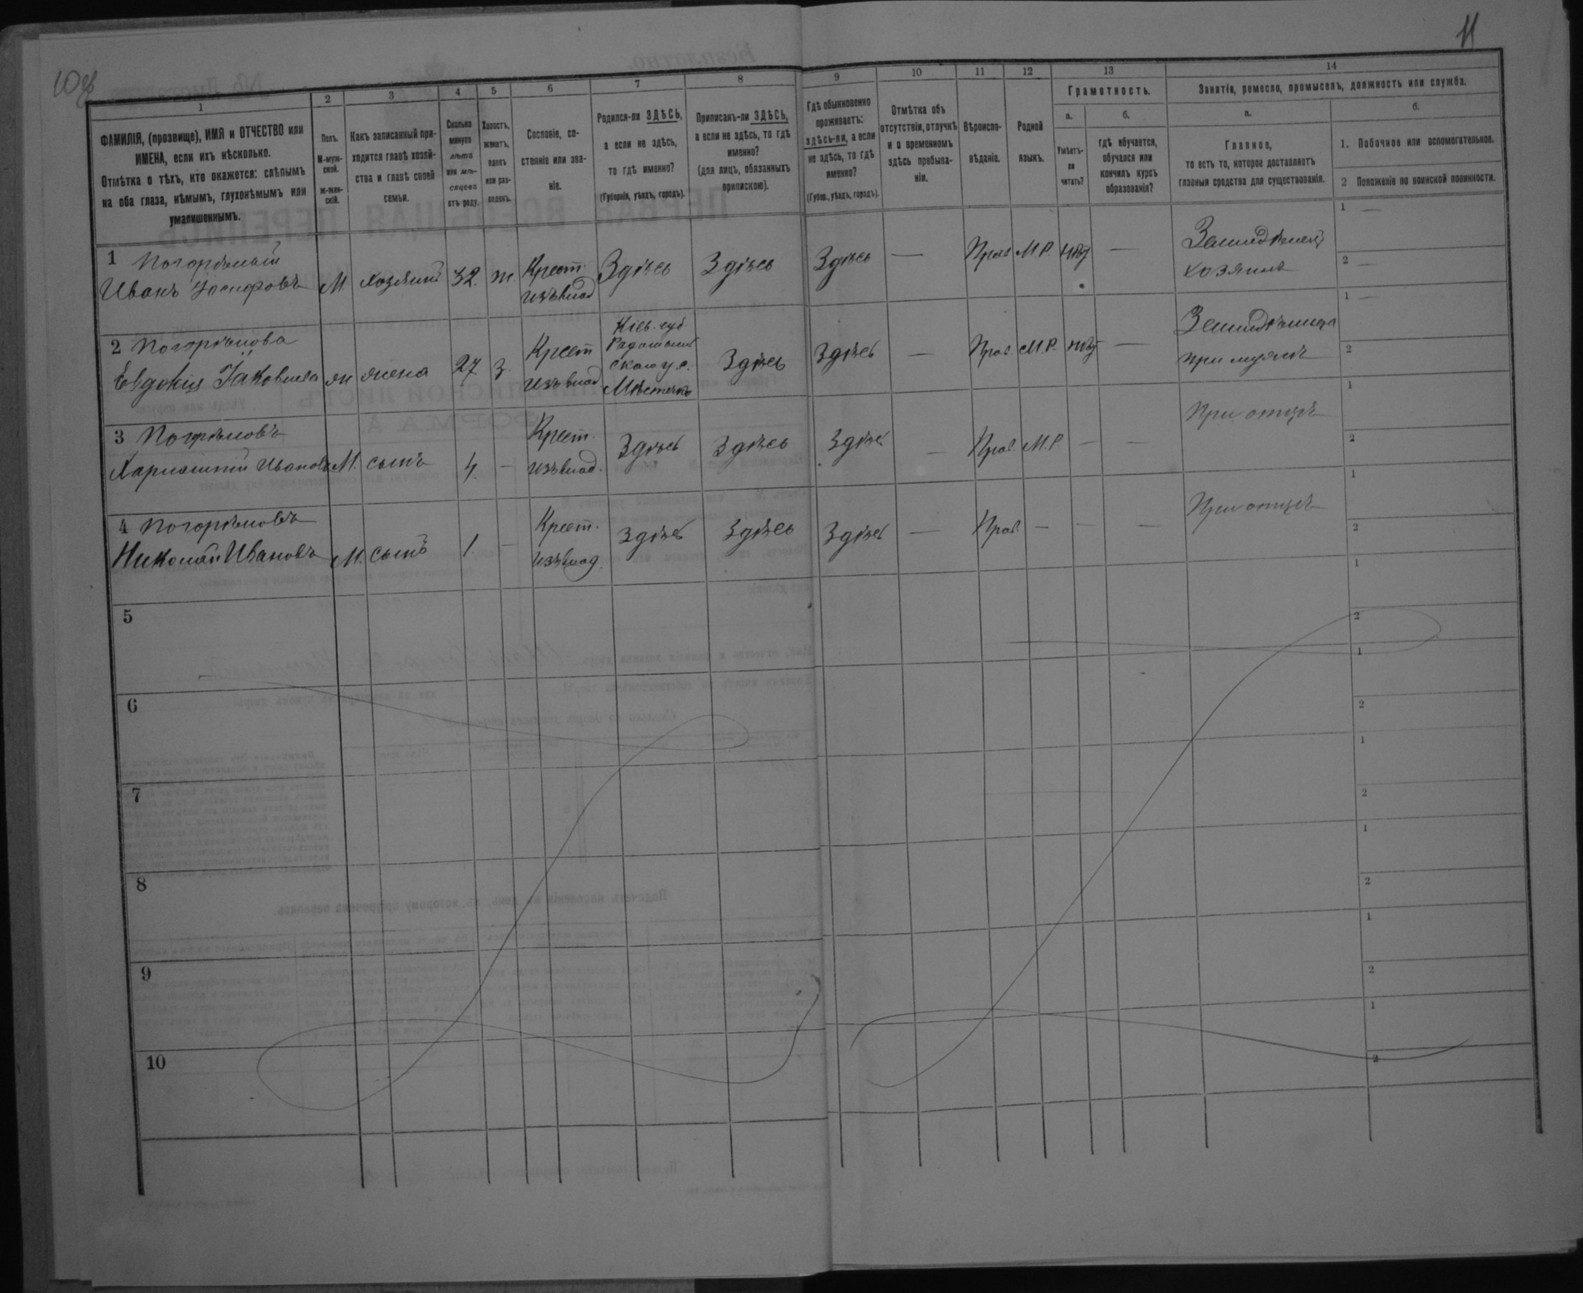 10об
11
1
2
3
4
5
6
7
8
9
10
11
12
13
14
ФАМИЛІЯ, (прозвище), ИМЯ и ОТЧЕСТВО или
ИМЕНА, если ихъ нѣсколько.
Отмѣтка о тѣхъ, кто окажется: слѣпымъ
на оба глаза, нѣмымъ, глухонѣмымъ или
умалишеннымъ.
Полъ.
М-муж-
ской.
Ж-жен-
скій.
Какъ записанный при-
ходится главѣ хозяй-
ства и главѣ своей
семьи.
Сколько
минуло
лѣтъ
или мѣ-
сяцевъ
отъ роду.
Холостъ,
женатъ,
вдовъ
или раз-
веденъ.
Сословіе, со-
стояніе или зва-
ніе.
Родился-ли ЗДѢСЬ,
а если не здѣсь,
то гдѣ именно?
(Губернія, уѣздъ, городъ).
Приписанъ-ли ЗДѢСЬ,
а если не здѣсь, то гдѣ
именно?
(для лицъ, обязанныхъ
припискою).
Гдѣ обыкновенно
проживаетъ:
здѣсь-ли, а если
не здѣсь, то гдѣ
именно?
(Губер., уѣздъ, городъ).
Отмѣтка объ
отсутствіи, отлучкѣ
и о временномъ
здѣсь пребыва-
ніи.
Вѣроиспо-
вѣданіе.
Родной
языкъ.
Грамотность.
а.
Умѣетъ-
ли
читать?
б.
гдѣ обучается,
обучался или
кончилъ курсъ
образованія?
Занятіе, ремесло, промыселъ, должность или служба.
а.
Главное,
то есть то, которое доставляетъ
главныя средства для существованія.
б.
1. Побочное или вспомогательное.
2 Положеніе по воинской повинности.
1 Погорѣлый
Иванъ Іосифовъ М. хозяинъ 32. ж. Крест. изъ влад. Здѣсь Здѣсь Здѣсь — Прав. М.Р. нѣт — Земледѣлецъ хозяинъ
1 —
2 —
2 Погорѣлова
Евдокія Яковлева ж жена 27 з. Крест изъ влад Кіев. губ.
Мѣстечкѣ Здѣсь Здѣсь — Прав. М.Р. нѣт — при мужѣ
1 —
2
3 Погорѣловъ
Иванов М. сынъ 4. — Крест. изъ влад. Здѣсь Здѣсь Здѣсь — Прав. М.Р. — — При отцѣ
1
2
4 Погорѣловъ
Николай Ивановъ М. сынъ 1. — Крест. изъ влад. Здѣсь Здѣсь Здѣсь — Прав. — — — При отцѣ
1
2
5
1
2
6
1
2
7
1
2
8
1
2
9
1
2
10
1
2